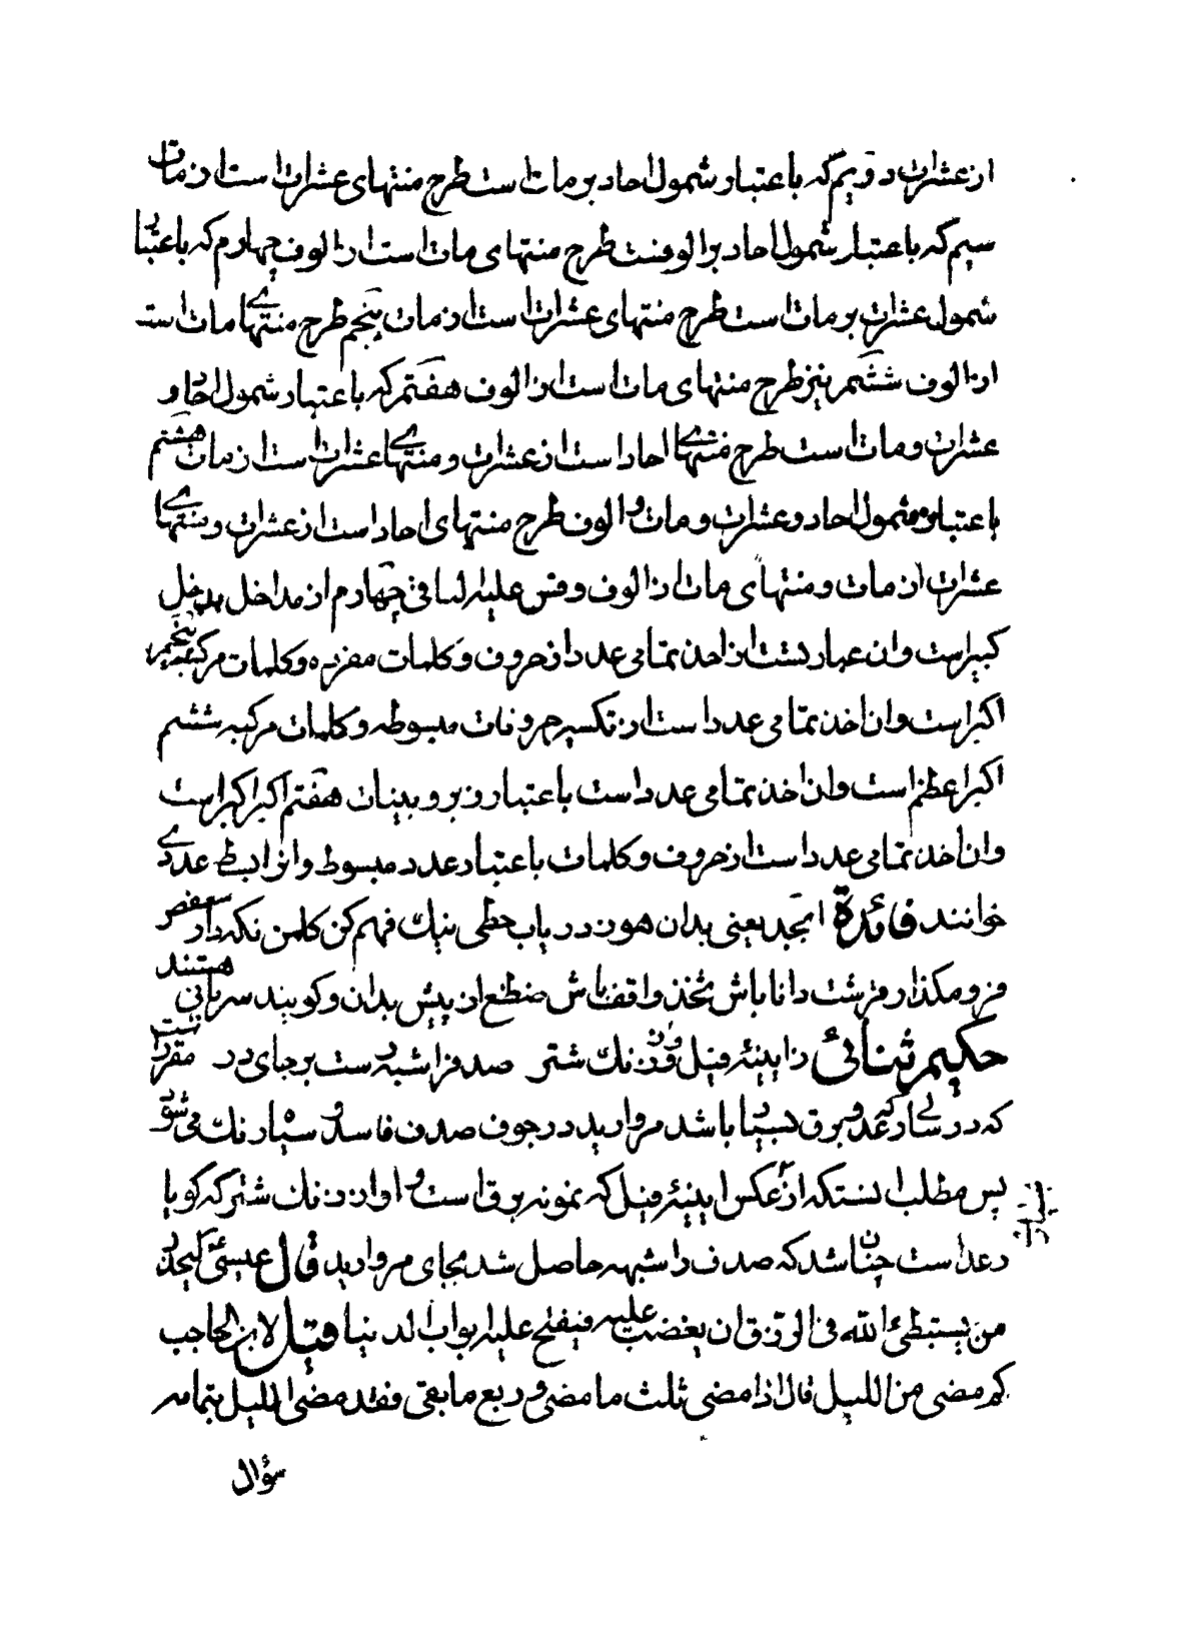 از عشرات دویم که باعتبار شمول احاد بر مات است طرح منتهای عشرات است از مات
سیم که باعتبار شمول احاد بر الوفست طرح منتهای مات است از الوف چهارم که باعتبار
شمول عشرات بر مات است طرح منتهای عشرات است از مات پنجم طرح منتهای مات است
از الوف ششم نیز طرح منتهای مات است از الوف هفتم که باعتبار شمول احاد و
عشرات و مات است طرح منتهای احاد است از عشرات و منتهای عشرات است از مات هشتم
باعتبار شمول احاد و عشرات و مات و الوف طرح منتهای احاد است از عشرات و منتهای
عشرات از مات و منتهای مات از الوف و قس علیه الباقی چهارم از مداخل مدخل
کبیر است و ان عبارتست از اخذ تمامی عدد از حروف و کلمات مفرده و کلمات مرکبه پنجم
اکبر است و ان اخذ تمامی عدد است از تکسیر حروفات مبسوطه و کلمات مرکبه ششم
اکبر اعظم است و ان اخذ تمامی عدد است باعتبار زبر و بینات هفتم اکبر اکبر است
و ان اخذ تمامی عدد است از حروف و کلمات باعتبار عدد مبسوط و انرا بسط عددی
خوانند فائدة ابجد یعنی بدان هوز دریاب حطی نیك فهم کن کلمن نکه دار سعفص
فرو مکذار قرشت دانا باش ثخذ واقف باش ضظغ از پیش بدان و کویند سریانی هستند
حکیم ثنائی ز ایینهٔ فیل وز زنك شتر صدف را شبه بست بر جای در مقرر است
که در سالی که رعد و برق بسیار باشد مروارید در جوف صدف فاسد و سیاه رنك می شود
پس مطلب انستکه از عکس ایینهٔ فیل که نمونه برق است و اواز زنك شتر که کویا
رعد است چنان شد که صدف را شبه حاصل شد بجای مروارید قال عیسی
من یستبطئ الله فی الرزق ان یغضب علیه فیفتح علیه ابواب الدنیا قیل لابن الحاجب
کم مضی من اللیل قال اذا مضی ثلث ما مضی و ربع ما بقی فقد مضی اللیل بتمامه
سؤال